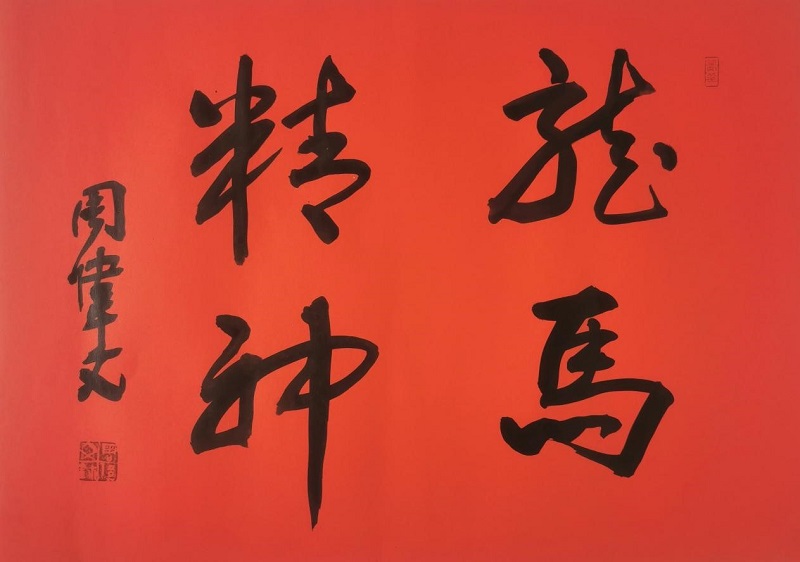 龍馬
精神
周偉文